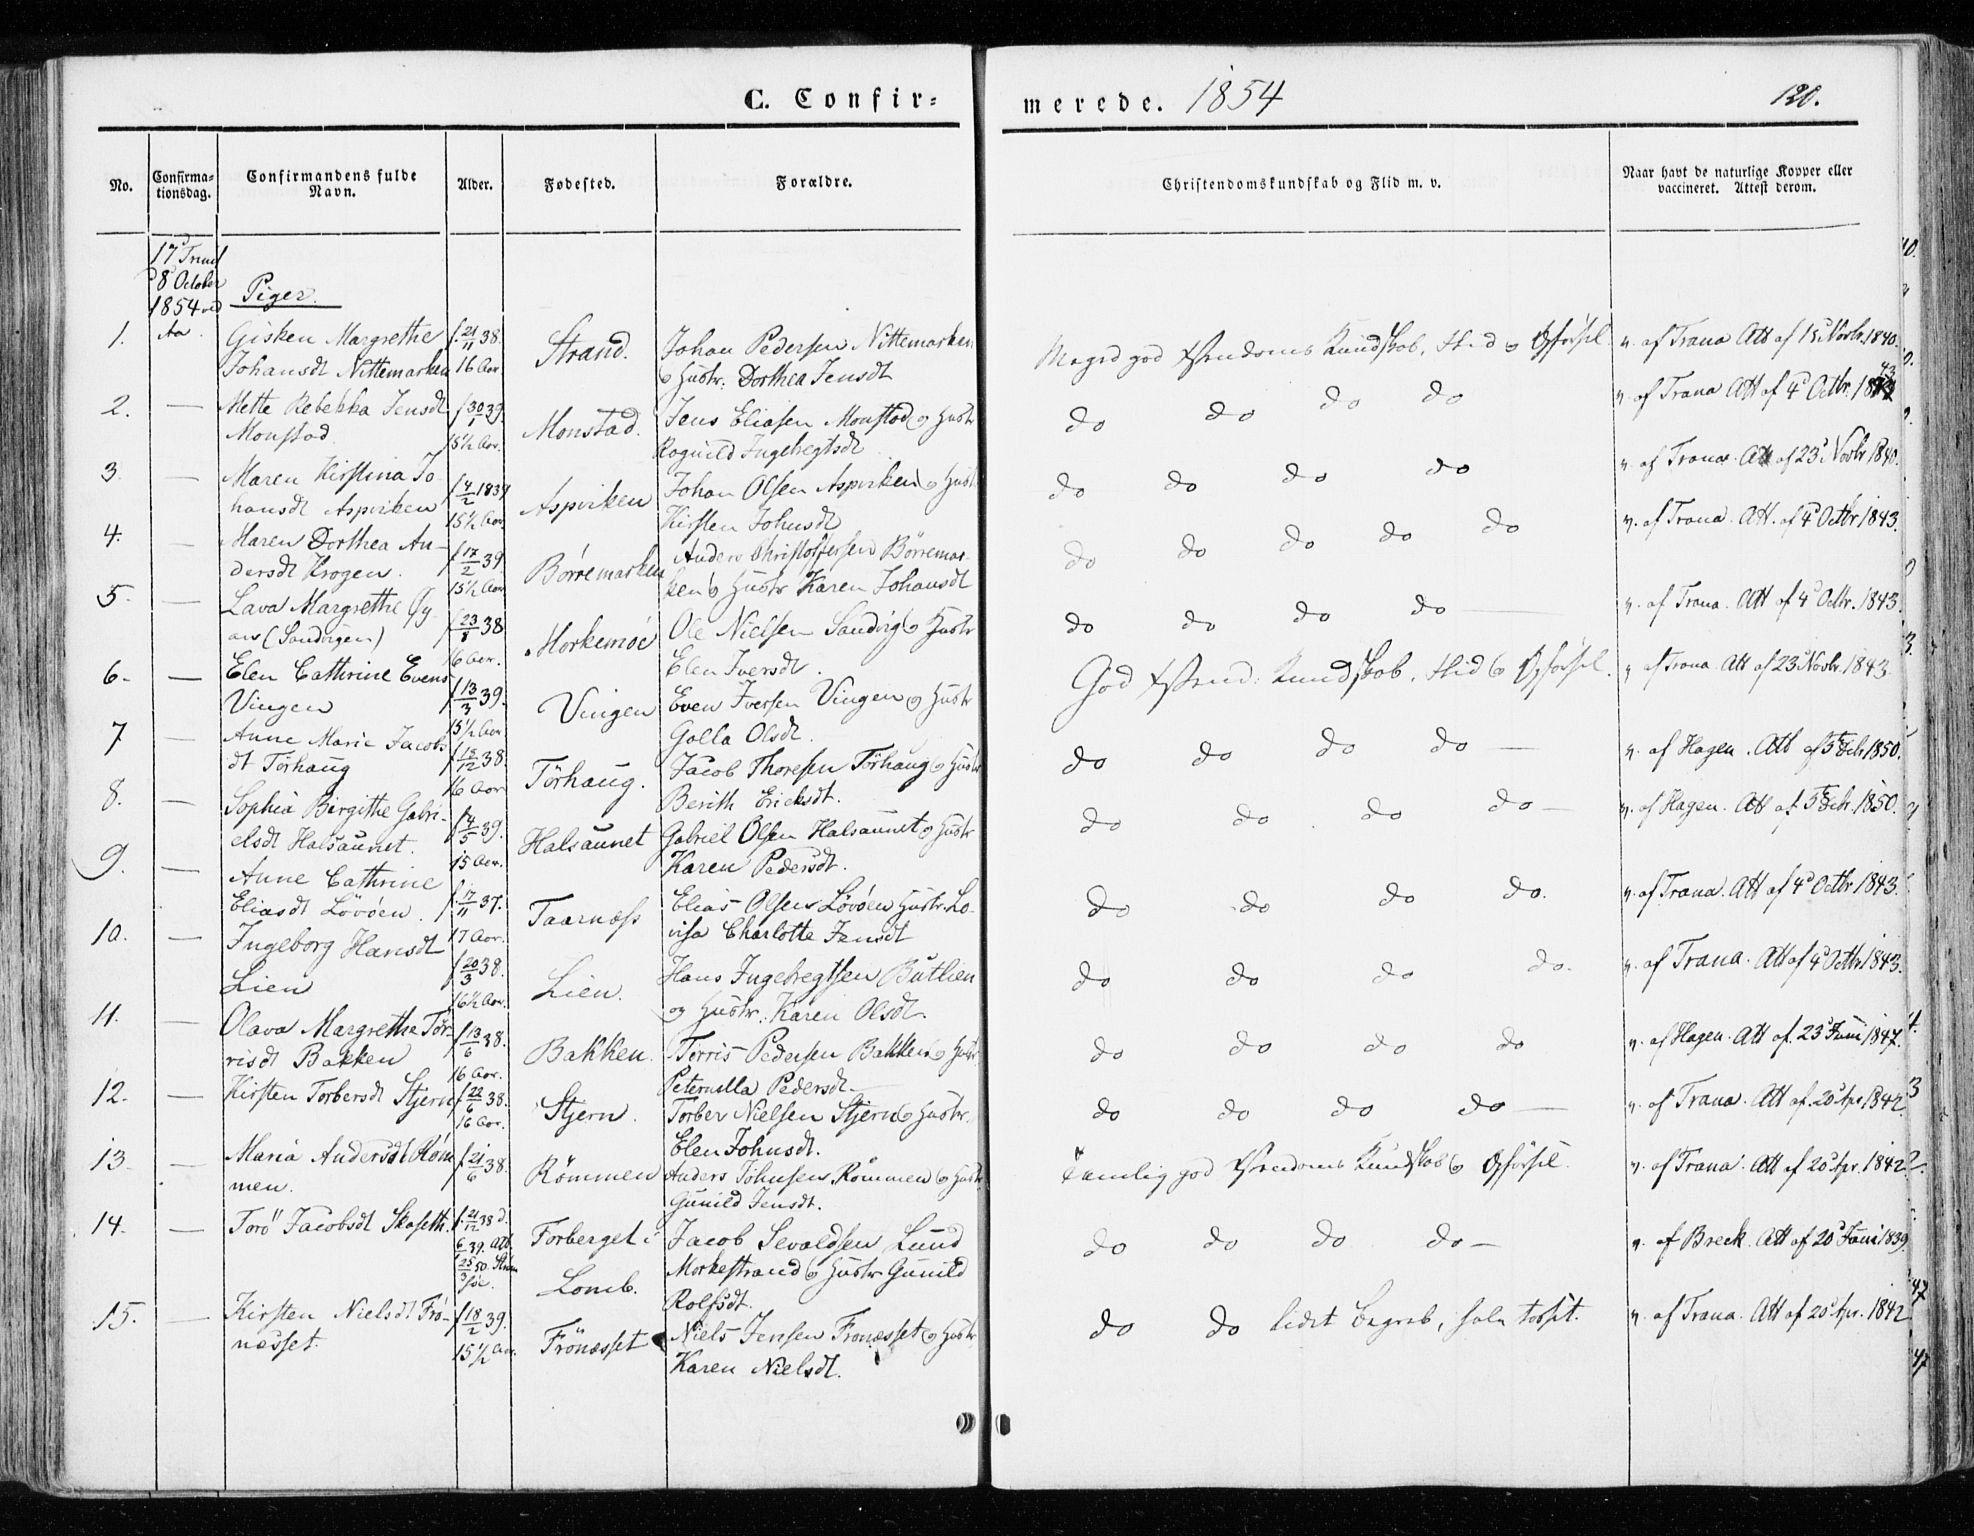 C. Confir=
merede. 1854
120.
No.
Confirma-
tionsdag.
Confirmandens fulde
Navn.
Alder.
Fødested.
Forældre.
Christendomskundskab og Flid m. v.
Naar havt de naturlige Kopper eller
vaccineret. Attest derom.
8 October
1854 ved
Aa.
Piger.
1. Gisken Margrethe
Johansdt Nittemarken
f. 21/11 38.
16 Aar
Strand.
Johan Pedersen Nittemarken
Hustr: Dorthea Jensdt
Meget god Kundskab, Flid
v. af Trana Att af 15 Novbr. 1840.
2. — Mette Rebekka Jensdt
Monstad
f 30/1 39.
15½ Aar.
Monstad.
Jens Eliasen Monstad Hustr
Ragnild Ingebregtsdt
do do do do
v. af Trana Att af 4 Octbr. 43
3. — Maren Kirstina Jo
hansdt Aspviken
f 4/2 1839
15½ Aar
Aspviken
Johan Olsen Aspviken Hustr
Kirsten Johnsdt
do do do do
v. af Trana. Att af 23 Novbr 1840.
4. — Maren Dorthea An-
dersdt Krogen.
f 17/2 39.
15½ Aar
Börremarken
Anders Christoffersen Börremar-
ken Hustr Karen Johansdt
do do do do do
v. af Trana. Att. af 4 Octbr 1843.
5. — Lava Margrethe
(Sandvigen)
f 23/8 38
16 Aar.
Morkemöe
Ole Nielsen Sandvig Hustr
Elen Iversdt.
do do do do —
v. af Trana. Att af 4 Octbr. 1843.
6. — Elen Cathrine Evens
Vingen
f 13/3 39.
15½ Aar
Vingen
Even Iversen Vingen Hustr
Golla Olsdt.
God Kundskab, Flid
v af Trana. Att af 23 Novbr. 1843.
7 — Anne Marie Jacobs
dt Törhaug
38.
16 Aar
Törhaug.
Jacob Thoresen Törhaug Hustr
Berith Ericksdt.
do do do do —
v. af Hagen. Att af 5 1850.
8. — Sophia Birgithe Gabri-
elsdt Halsaunet.
f 4/5 39.
15 Aar.
Halsaunet
Gabriel Olsen Halsaunet Hustr
Karen Pedersdt.
do do do do —
v. af Hagen. Att af 5 1850.
9. — Anne Cathrine
Eliasdt Lövöen.
f. 17/11 37.
17 Aar.
Taarnæss
Elias Olsen Lövöen Hustr. Lo-
visa Charlotte Jensdt
do do do do.
v. af Trana. Att af 4 Octbr 1843.
10. — Ingeborg Hansdt
Lien
f 20/3 38.
16½ Aar.
Lien.
Hans Ingebregtsen Butlien
og Hustr. Karen Olsdt.
do do do do.
v. af Trana. Att af 4 Octbr. 1843.
11. — Olava Margrethe Tör-
risdt Bakken
f 13/6 38.
16 Aar.
Bakken.
Torris Pedersen Bakken Hustr
Peternilla Pedersdt
do do do do
v. af Hagen. Att af. 23 Juni 1847.
12. — Kirsten Torbersdt Stjern
f 22/6 38.
16 Aar.
Stjern.
Torber Nielsen Stjern Hustr.
Elen Johnsdt.
do do do do —
v. af Trana. Att af. 20 Apr. 1842.
13. — Maria Andersdt Röm
men.
f 21/6 38.
Römmen
Anders Johnsen Römmen Hustr
Gunild Jensdt.
Temlig god Kundskab
v. af Trana. Att af 20 Apr. 1842
14. — Torö Jacobsdt Skaseth.
f. 21/12 38 d.
6/1 39. Att
25/3 50.
Forberget i
Lomb.
Jacob Sevaldsen Lund
Morkestrand Hustr Gunild
Rolfsdt.
do do do do —
v. af Breck. Att af 20 Juni 1839
15. — Kirsten Nielsdt Frö-
næsset.
f 18/2 39.
15½ Aar.
Frönæsset
Niels Jensen Fronæsset Hustr
Karen Nielsdt.
do do lidet Begreb,
v. af Trana. Att af 20 Apr. 1842